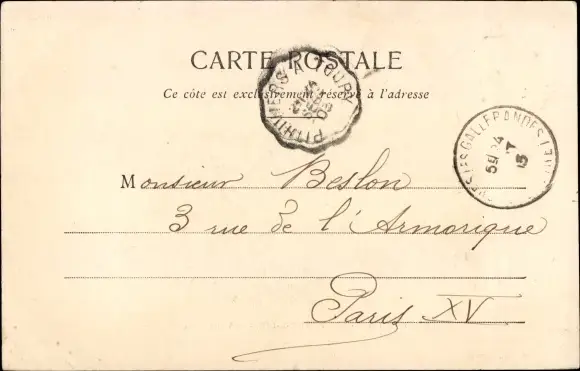 CARTE POSTALE
Ce côte est exclusivement réservé à l'adresse
PITHIVIERS A TOURY
GALLERANDES
Monsieur Beslon
3 rue de l'Armorique
Paris XV